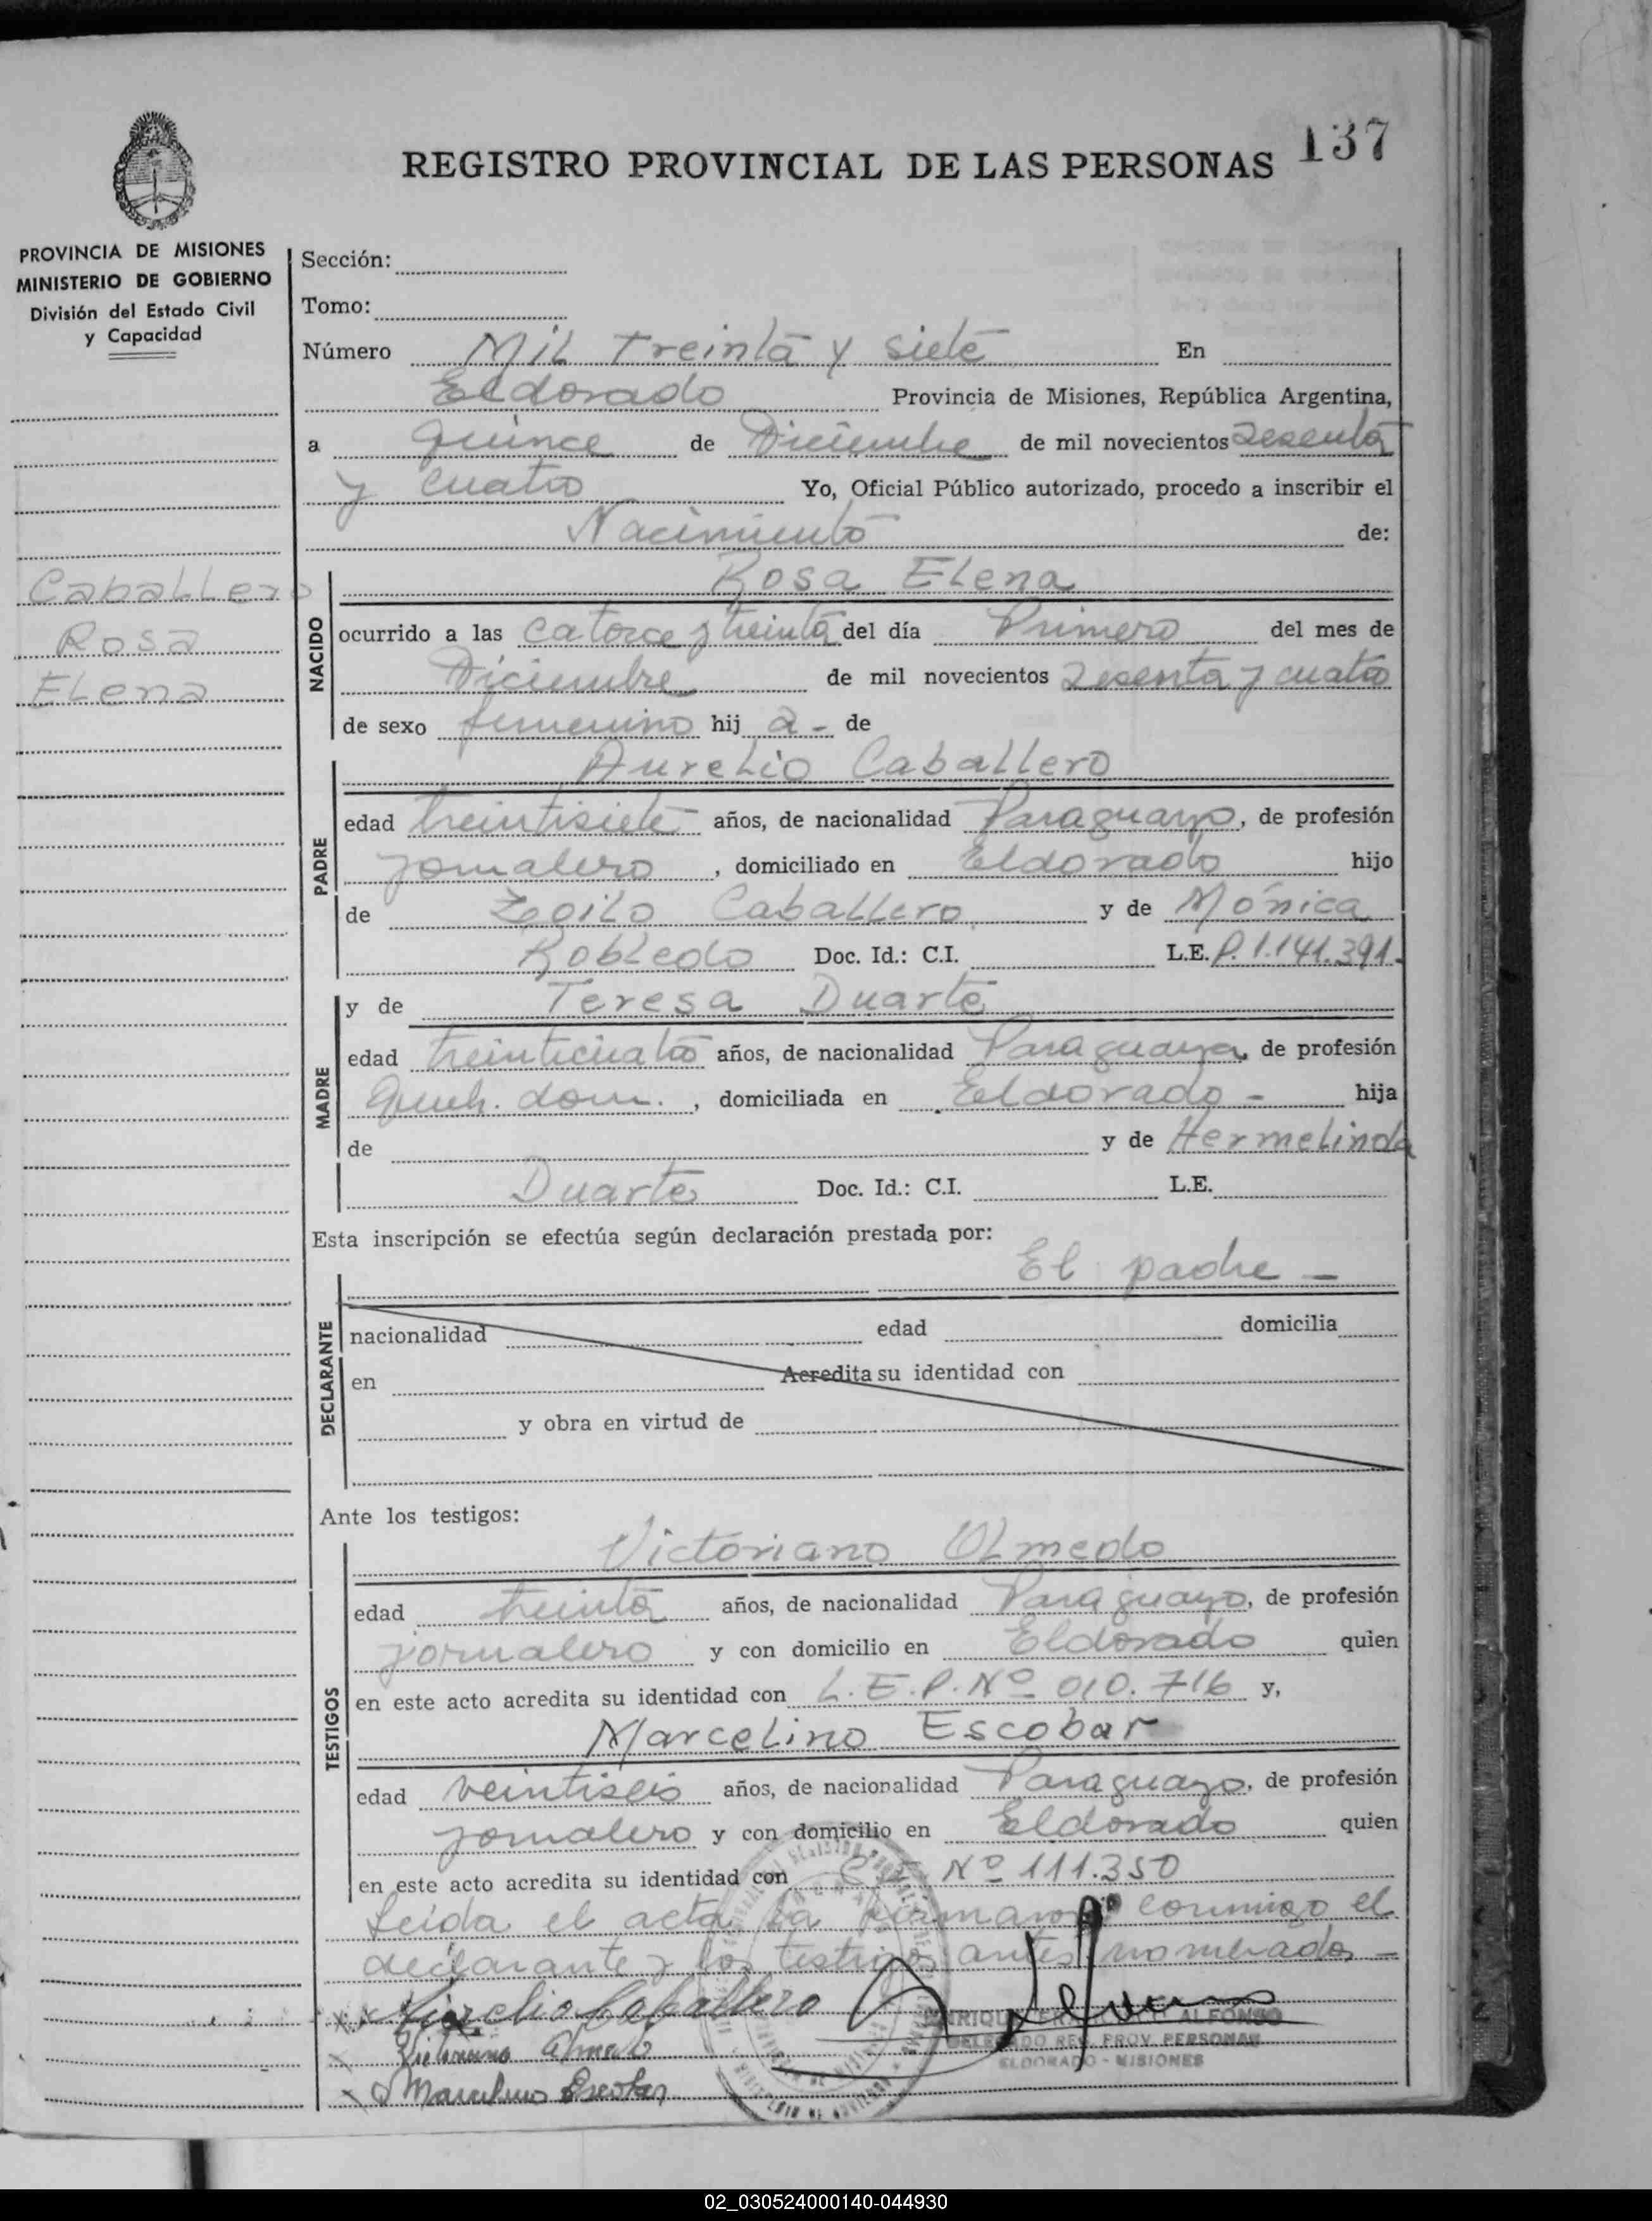 137
REGISTRO PROVINCIAL DE LAS PERSONAS
PROVINCIA DE MISIONES
MINISTERIO DE GOBIERNO
División del Estado Civil
y Capacidad
Caballero
Rosa
Elena
Sección:
Tomo:
Número Mil treinta y siete En
Eldorado Provincia de Misiones, República Argentina,
a quince de Diciembre de mil novecientos sesenta
y cuatro Yo, Oficial Público autorizado, procedo a inscribir el
Nacimiento de:
NACIDO
Rosa Elena
ocurrido a las catorce y treinta del día Primero del mes de
Diciembre de mil novecientos sesenta y cuatro
de sexo femenino hij a - de
PADRE
Aurelio Caballero
edad treintisiete años, de nacionalidad Paraguayo, de profesión
jornalero, domiciliado en Eldorado hijo
de Zoilo Caballero y de Mónica
Robledo Doc. Id.: C.I. L.E. P. 1.141.391.
MADRE
y de Teresa Duarte
edad treinticuatro años, de nacionalidad Paraguaya, de profesión
Queh. dom., domiciliada en Eldorado - hija
de y de Hermelinda
Duarte Doc. Id.: C.I. L.E.
Esta inscripción se efectúa según declaración prestada por:
El padre -
DECLARANTE
nacionalidad edad domicilia
en Acredita su identidad con
y obra en virtud de
Ante los testigos:
TESTIGOS
Victoriano Olmedo
edad treinta años, de nacionalidad Paraguayo, de profesión
jornalero y con domicilio en Eldorado quien
en este acto acredita su identidad con L.E.P. Nº 010.716 y,
Marcelino Escobar
edad veintiseis años, de nacionalidad Paraguayo, de profesión
jornalero y con domicilio en Eldorado quien
en este acto acredita su identidad con Nº 111.350
Leida el acta la firmaron conmigo el
declarante y los testigos antes nombrados -
Aurelio Caballero
Victoriano Olmedo
Marcelino Escobar
ALFONSO
DELEGADO REG. PROV. PERSONAS
ELDORADO - MISIONES
02_030524000140-044930